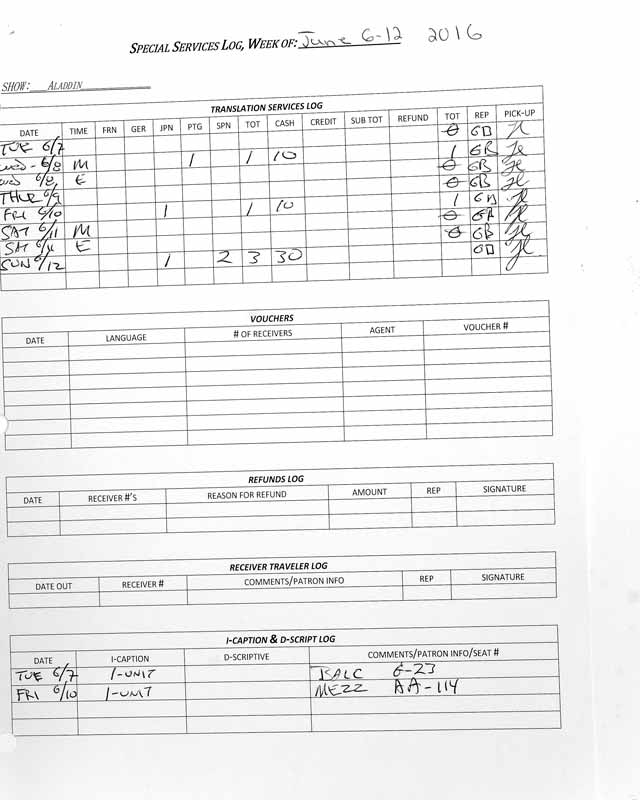 SPECIAL SERVICES LOG, WEEK OF: June 6-12 2016
SHOW: ALADDIN
TRANSLATION SERVICES LOG
DATE TIME FRN GER JPN PTG SPN TOT CASH CREDIT SUB TOT REFUND TOT REP PICK-UP
TUE 6/7 0 GB
WED - 6/8 M 1 1 10 1 GB
WED 6/8 E 0 GB
THUR 6/9 0 GB
FRI 6/10 1 1 10 1 GB
SAT 6/11 M 0 GB
SAT 6/11 E 0 GB
SUN 6/12 1 2 3 30 GB
VOUCHERS
DATE LANGUAGE # OF RECEIVERS AGENT VOUCHER #
REFUNDS LOG
DATE RECEIVER #'S REASON FOR REFUND AMOUNT REP SIGNATURE
RECEIVER TRAVELER LOG
DATE OUT RECEIVER # COMMENTS/PATRON INFO REP SIGNATURE
I-CAPTION & D-SCRIPT LOG
DATE I-CAPTION D-SCRIPTIVE COMMENTS/PATRON INFO/SEAT #
TUE 6/7 1-UNIT BALC G-23
FRI 6/10 1-UNIT MEZZ AA-114